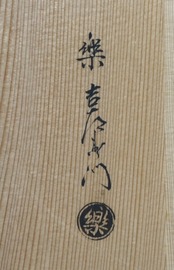 樂
吉左衛門
樂